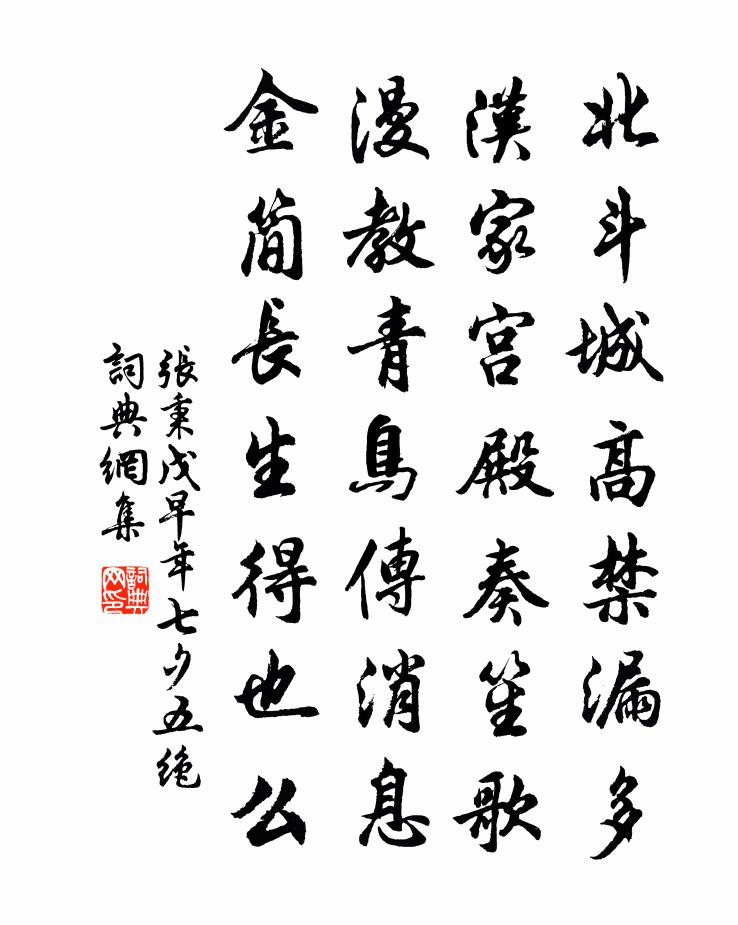 北斗城高禁漏多
漢家宫殿奏笙歌
漫教青鳥傳消息
金简長生得也么
張秉戊早年七夕五绝
詞典網集
詞典網印